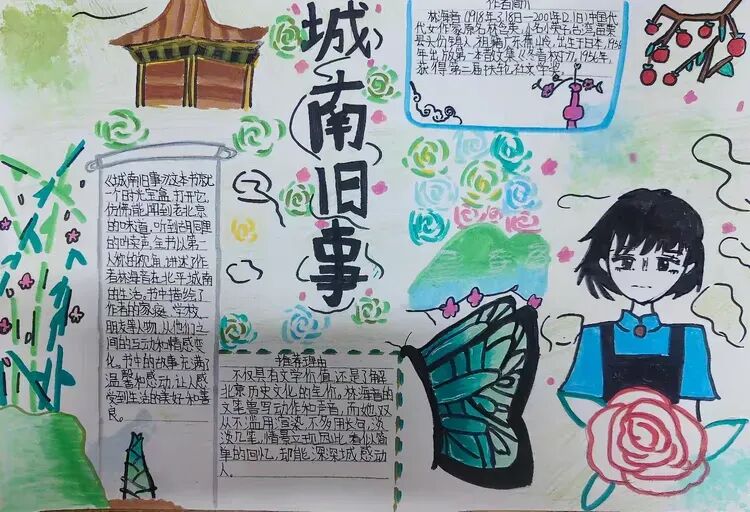 城南旧事
作者简介
林海音(1918年3月18日—2001年12月1日)中国代
代女作家原名林含英,小名英子,
县头份镇人,祖籍广东蕉岭,出生于日本,195
年出版第一本散文集《冬青树》,
获得第二届扶轮社文学奖
《城南旧事》这本书就
个时光宝盒,打开它,
仿佛能闻到老北京
的味道,听到胡同里
的吆卖声,
人称的视角,讲述了作
者林海音在北平城南
的生活。书中描绘了
作者的家庭、学校、
朋友等人物,从他们之
间的互动和情感变
化。书中的故事充满了
温馨和感动,让人感
受到生活的美好和善
良。
推荐理由
不仅具有文学价值,还是了解
北京历史文化的
文笔善写动作和声音,而她
从不滥用渲染,不多用长句,淡
淡几笔,情景立现,因此,看似简
单的回忆,却能深深
人。